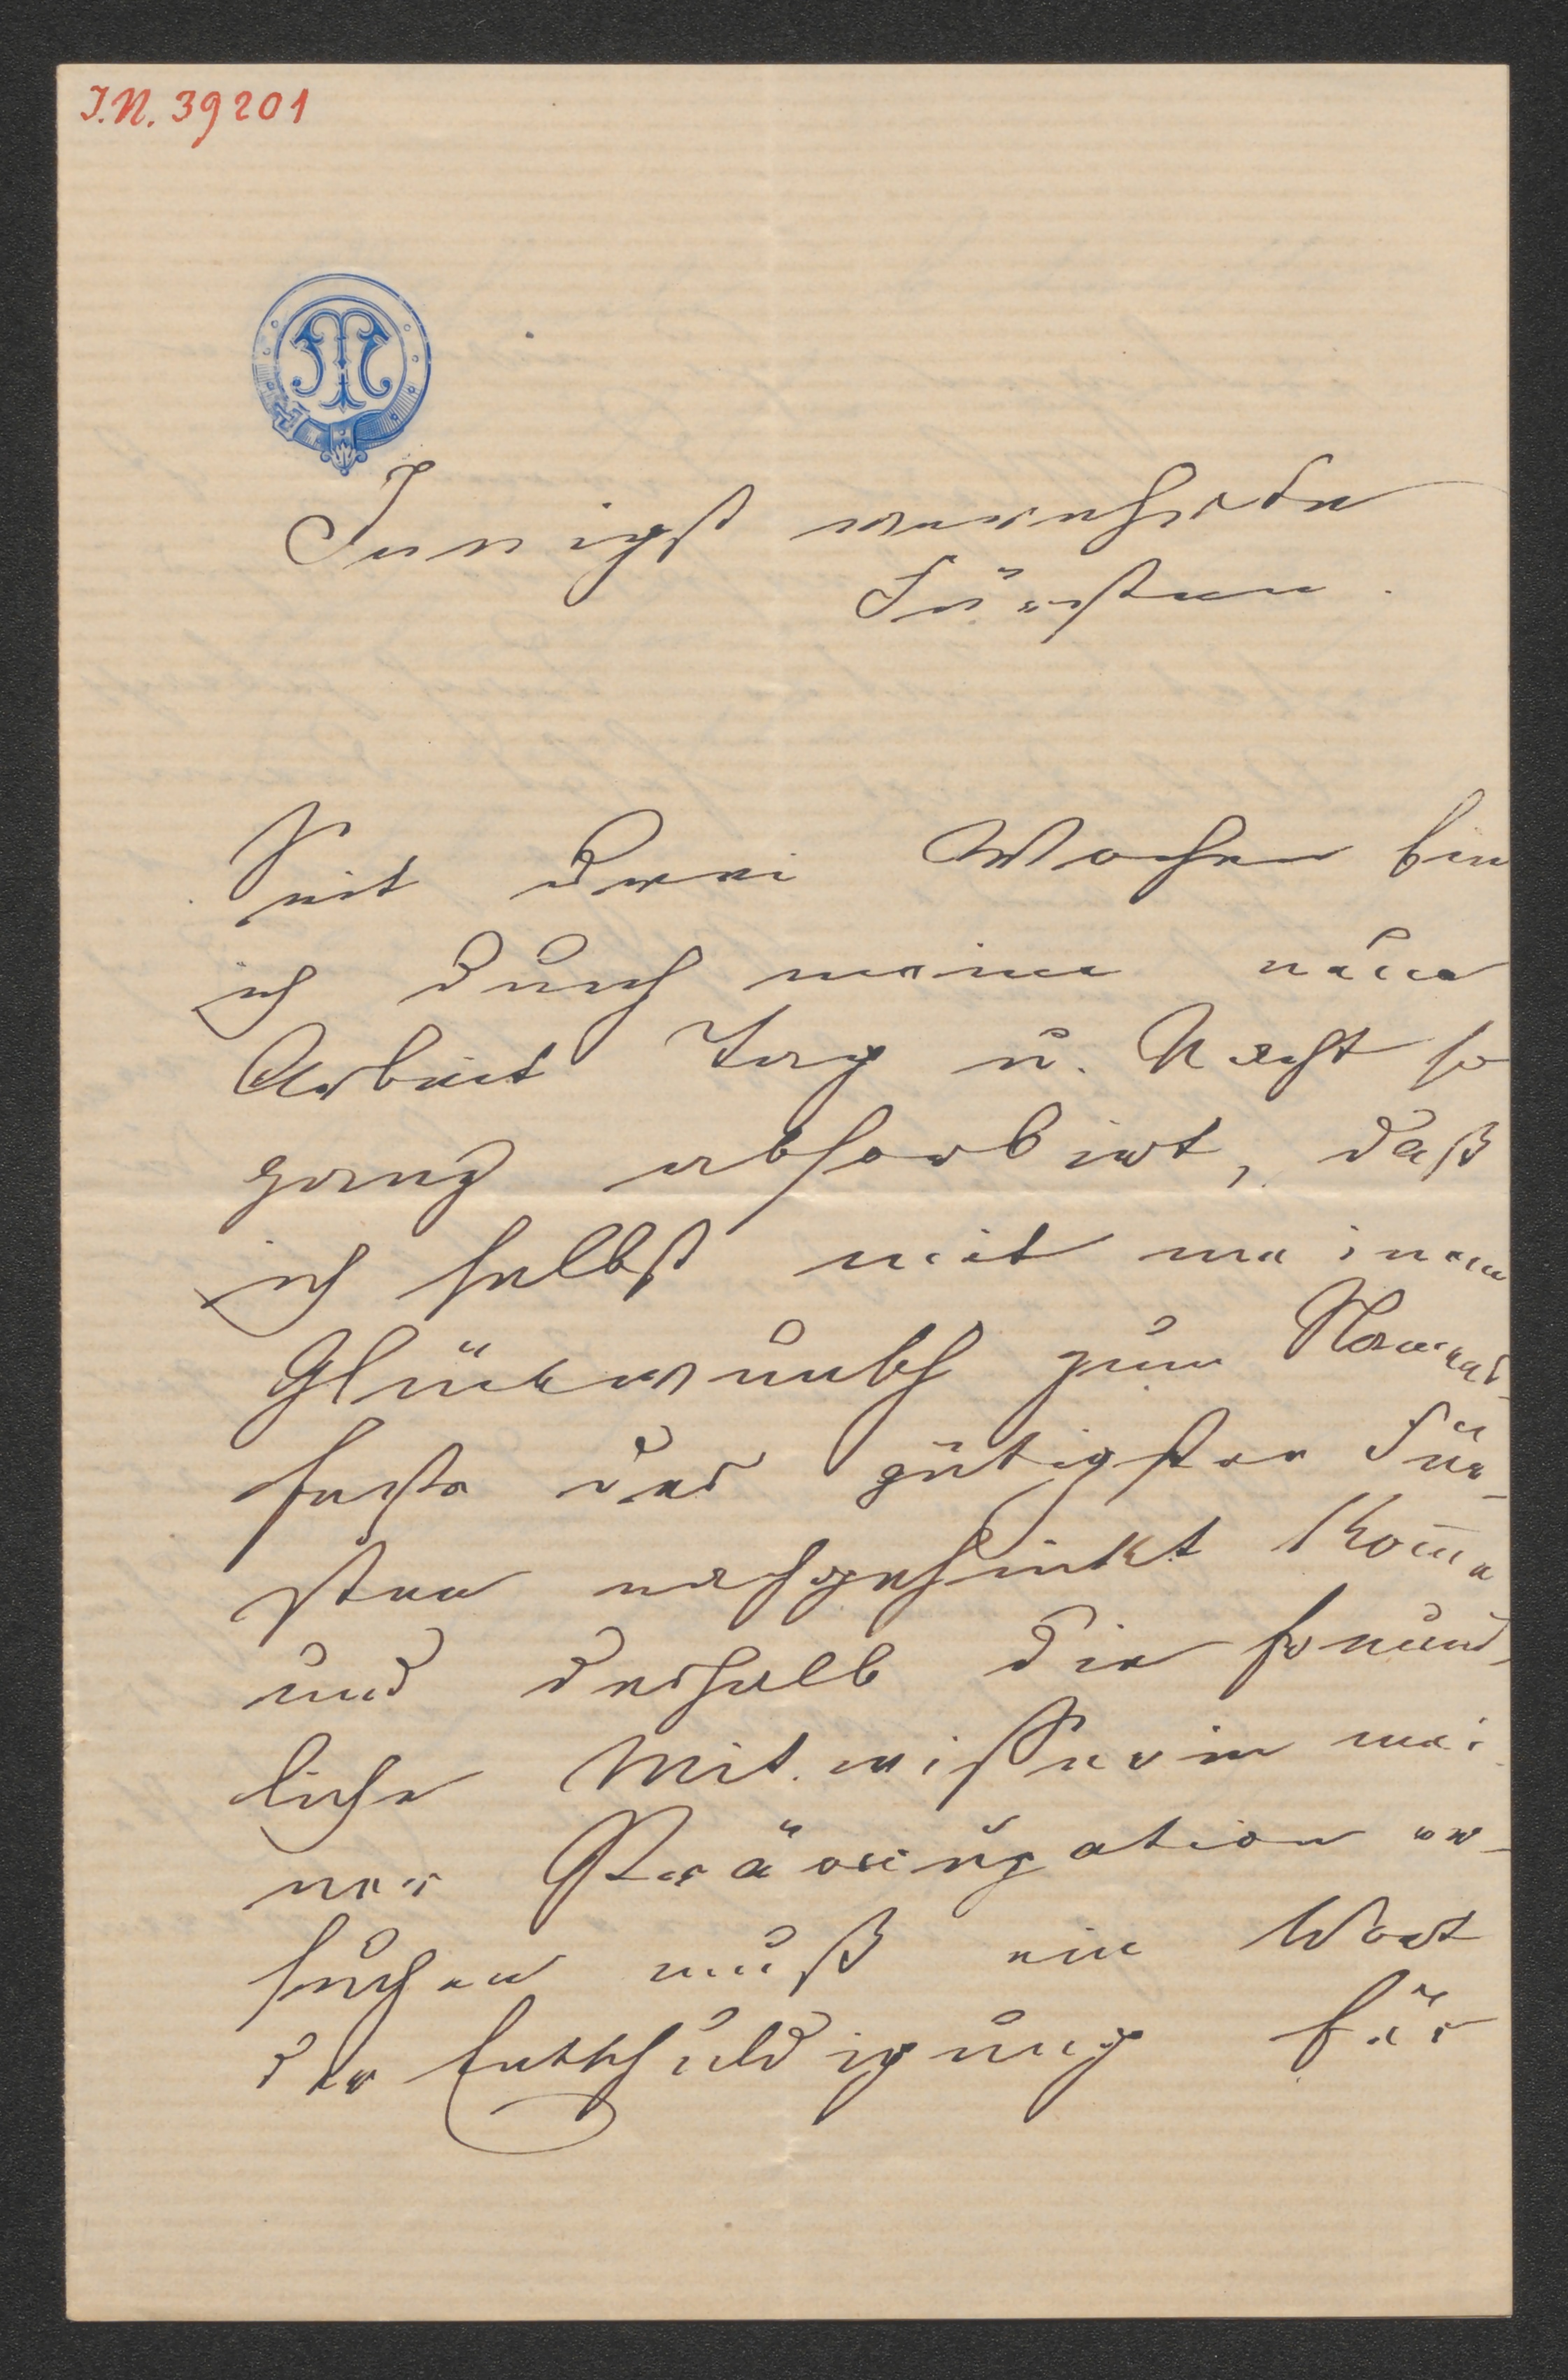 I.N. 39201
Innigst verehrte
Fürsten.
Seit drei Wochen bin
ich durch meine neue
Arbeit Tag u. Nacht so
ganz absorbirt, daß
ich selbst mit meinem
Glückwunsch zum Namens-
feste des gütigsten Für-
sten nachgehinkt komme
und deshalb die freund-
liche Mitwisserin mei-
ner er-
suchen muß ein Wort
der Entschuldigung für